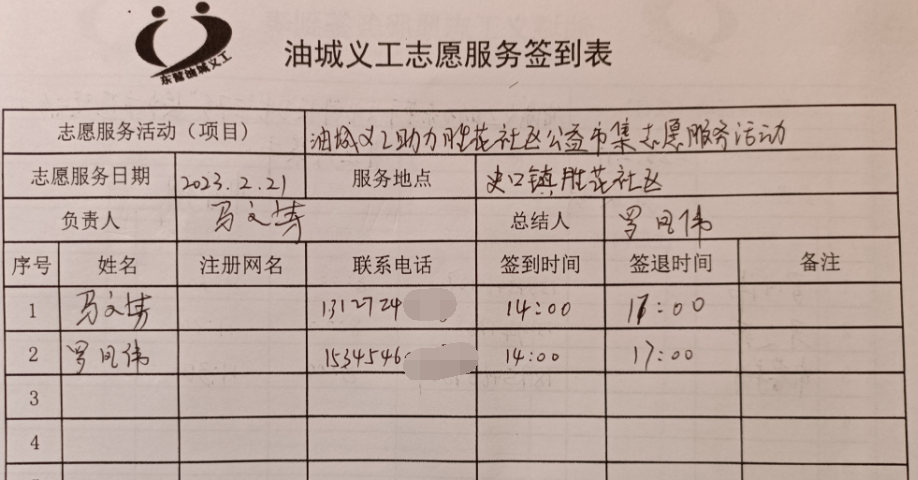 东营油城义工
油城义工志愿服务签到表
志愿服务活动（项目） 油城义工助力胜花社区公益市集志愿服务活动
志愿服务日期 2023.2.21 服务地点 史口镇胜花社区
负责人 马文 总结人 罗 伟
序号 姓名 注册网名 联系电话 签到时间 签退时间 备注
1 马文 1312724 14:00 17:00
2 罗 伟 1534546 14:00 17:00
3
4